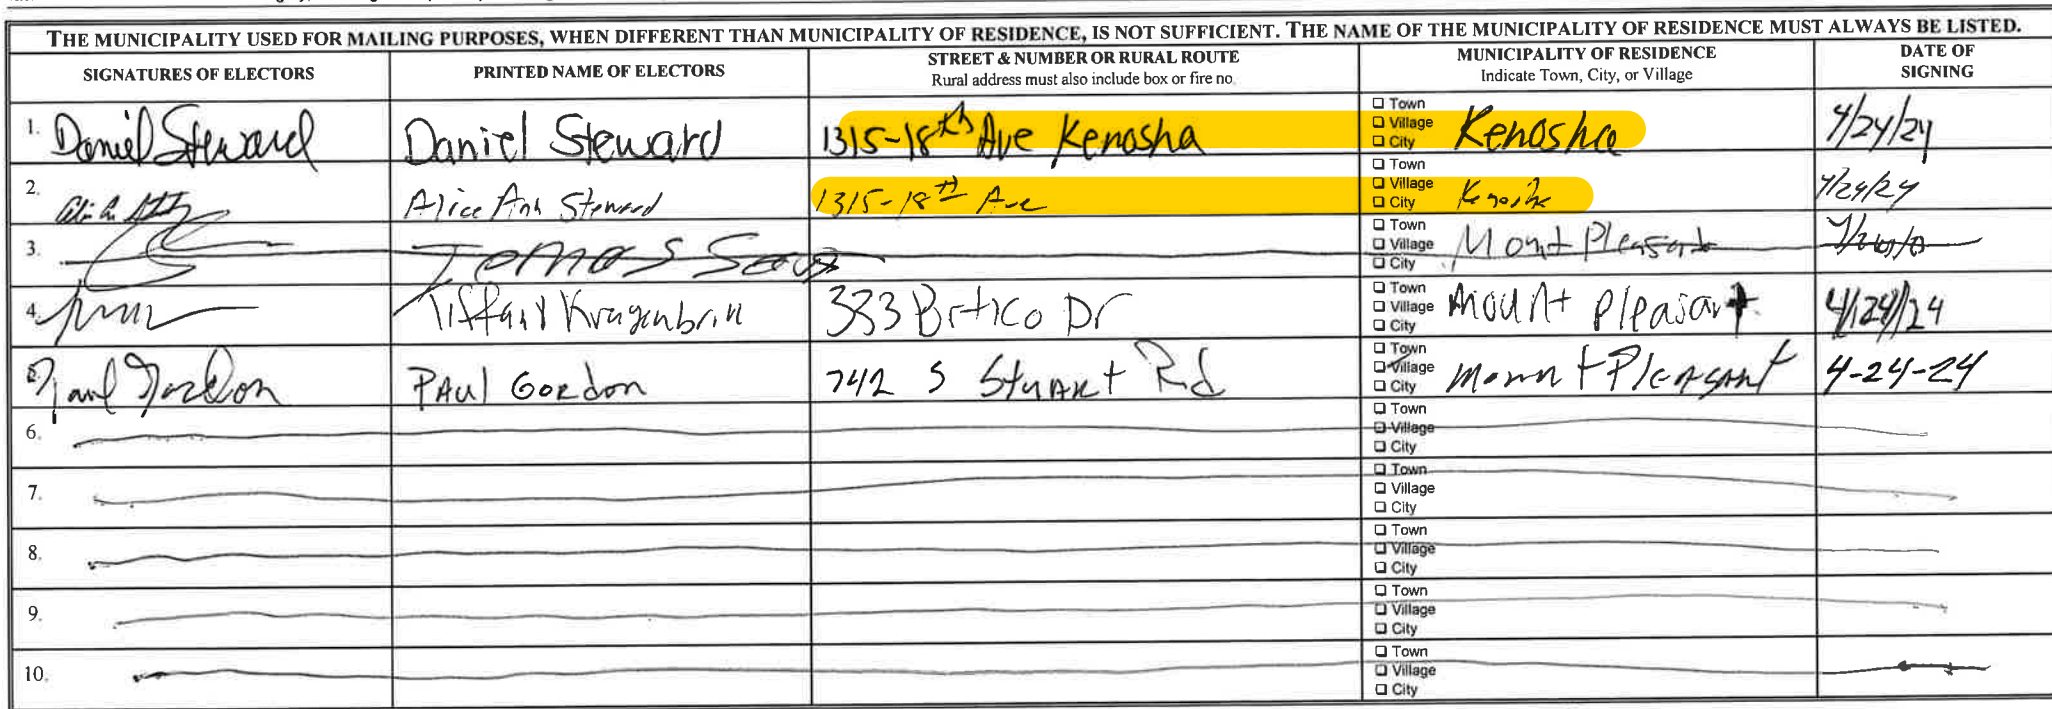 THE MUNICIPALITY USED FOR MAILING PURPOSES, WHEN DIFFERENT THAN MUNICIPALITY OF RESIDENCE, IS NOT SUFFICIENT. THE NAME OF THE MUNICIPALITY OF RESIDENCE MUST ALWAYS BE LISTED.
SIGNATURES OF ELECTORS PRINTED NAME OF ELECTORS STREET & NUMBER OR RURAL ROUTE Rural address must also include box or fire no. MUNICIPALITY OF RESIDENCE Indicate Town, City, or Village DATE OF SIGNING
1. Daniel Steward Daniel Steward 1315-18th Ave Kenosha Town Village City Kenosha 4/24/24
2. Alice Ann Steward 1315-18th Ave Town Village City Kenosha 4/24/24
3. Tomas Town Village City Mount Pleasant
4. Tiffany 333 Dr Town Village City Mount Pleasant 4/24/24
5. Paul Gordon PAUL GORDON 742 S Stuart Rd Town Village City Mount Pleasant 4-24-24
6. Town Village City
7. Town Village City
8. Town Village City
9. Town Village City
10. Town Village City